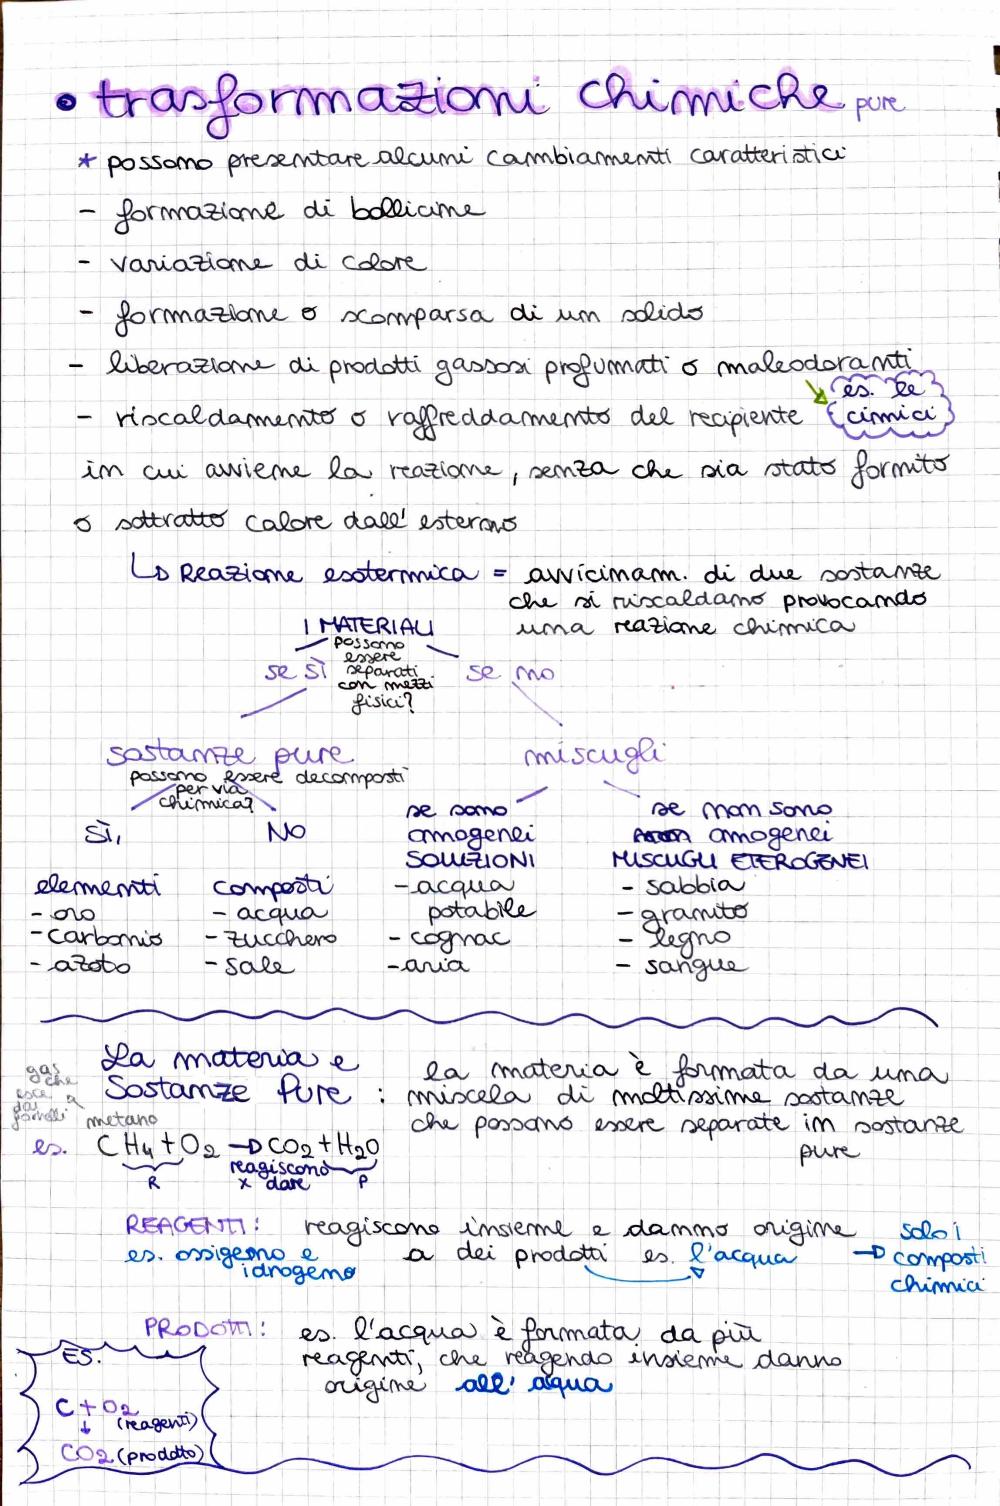 • trasformazioni chimiche pure
* possono presentare alcuni cambiamenti caratteristici
- formazione di bollicine
- variazione di colore
- formazione o scomparsa di un solido
- liberazione di prodotti gassosi profumati o maleodoranti
es. le
cimici
- riscaldamento o raffreddamento del recipiente
in cui avviene la reazione, senza che sia stato fornito
o sottratto calore dall' esterno
↳ Reazione esotermica = avvicinam. di due sostanze
che si riscaldano provocando
una reazione chimica
I MATERIALI
possono
essere
separati
con mezzi
fisici?
se sì
se no
sostanze pure
possono essere decomposti
per via
chimica?
miscugli
SÌ,
NO
se sono
omogenei
SOLUZIONI
se non sono
omogenei
MISCUGLI ETEROGENEI
elementi
- oro
- carbonio
- azoto
composti
- acqua
- zucchero
- sale
- acqua
potabile
- cognac
- aria
- sabbia
- granito
- legno
- sangue
La materia e
Sostanze Pure :
la materia è formata da una
miscela di moltissime sostanze
che possono essere separate in sostanze
pure
gas
che
esce
dai
fornelli
metano
es. CH4 + O2 → CO2 + H2O
R
reagiscono
x dare
P
REAGENTI: reagiscono insieme e danno origine
a dei prodotti es. l'acqua
es. ossigeno e
idrogeno
solo i
→ composti
chimici
PRODOTTI: es. l'acqua è formata da più
reagenti, che reagendo insieme danno
origine all' acqua
ES.
C + O2
↓ (reagenti)
CO2 (prodotto)